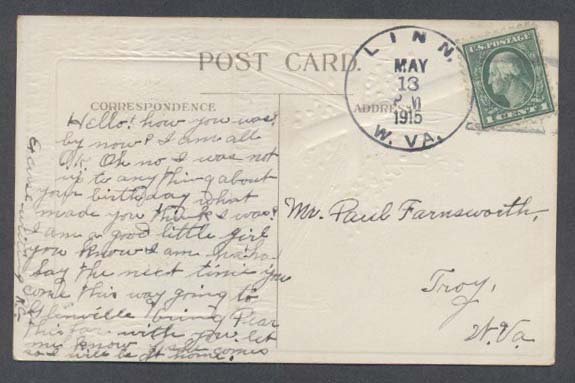 POST CARD.
CORRESPONDENCE
ADDRESS
LINN.
MAY
13
1915
W. VA.
U.S. POSTAGE
1 CENT 1
Hello! how you was?
by now? I am all
O.K. Oh no I was not
up to any thing about
your birthday what
made you think I was?
I am a good little girl
you know I am ha! ha!
Say the next time you
come this way going to
Glenville bring Pear
this far with you. let
me know
so I will be at home.
Mr. Paul Farnsworth,
Troy,
W. Va